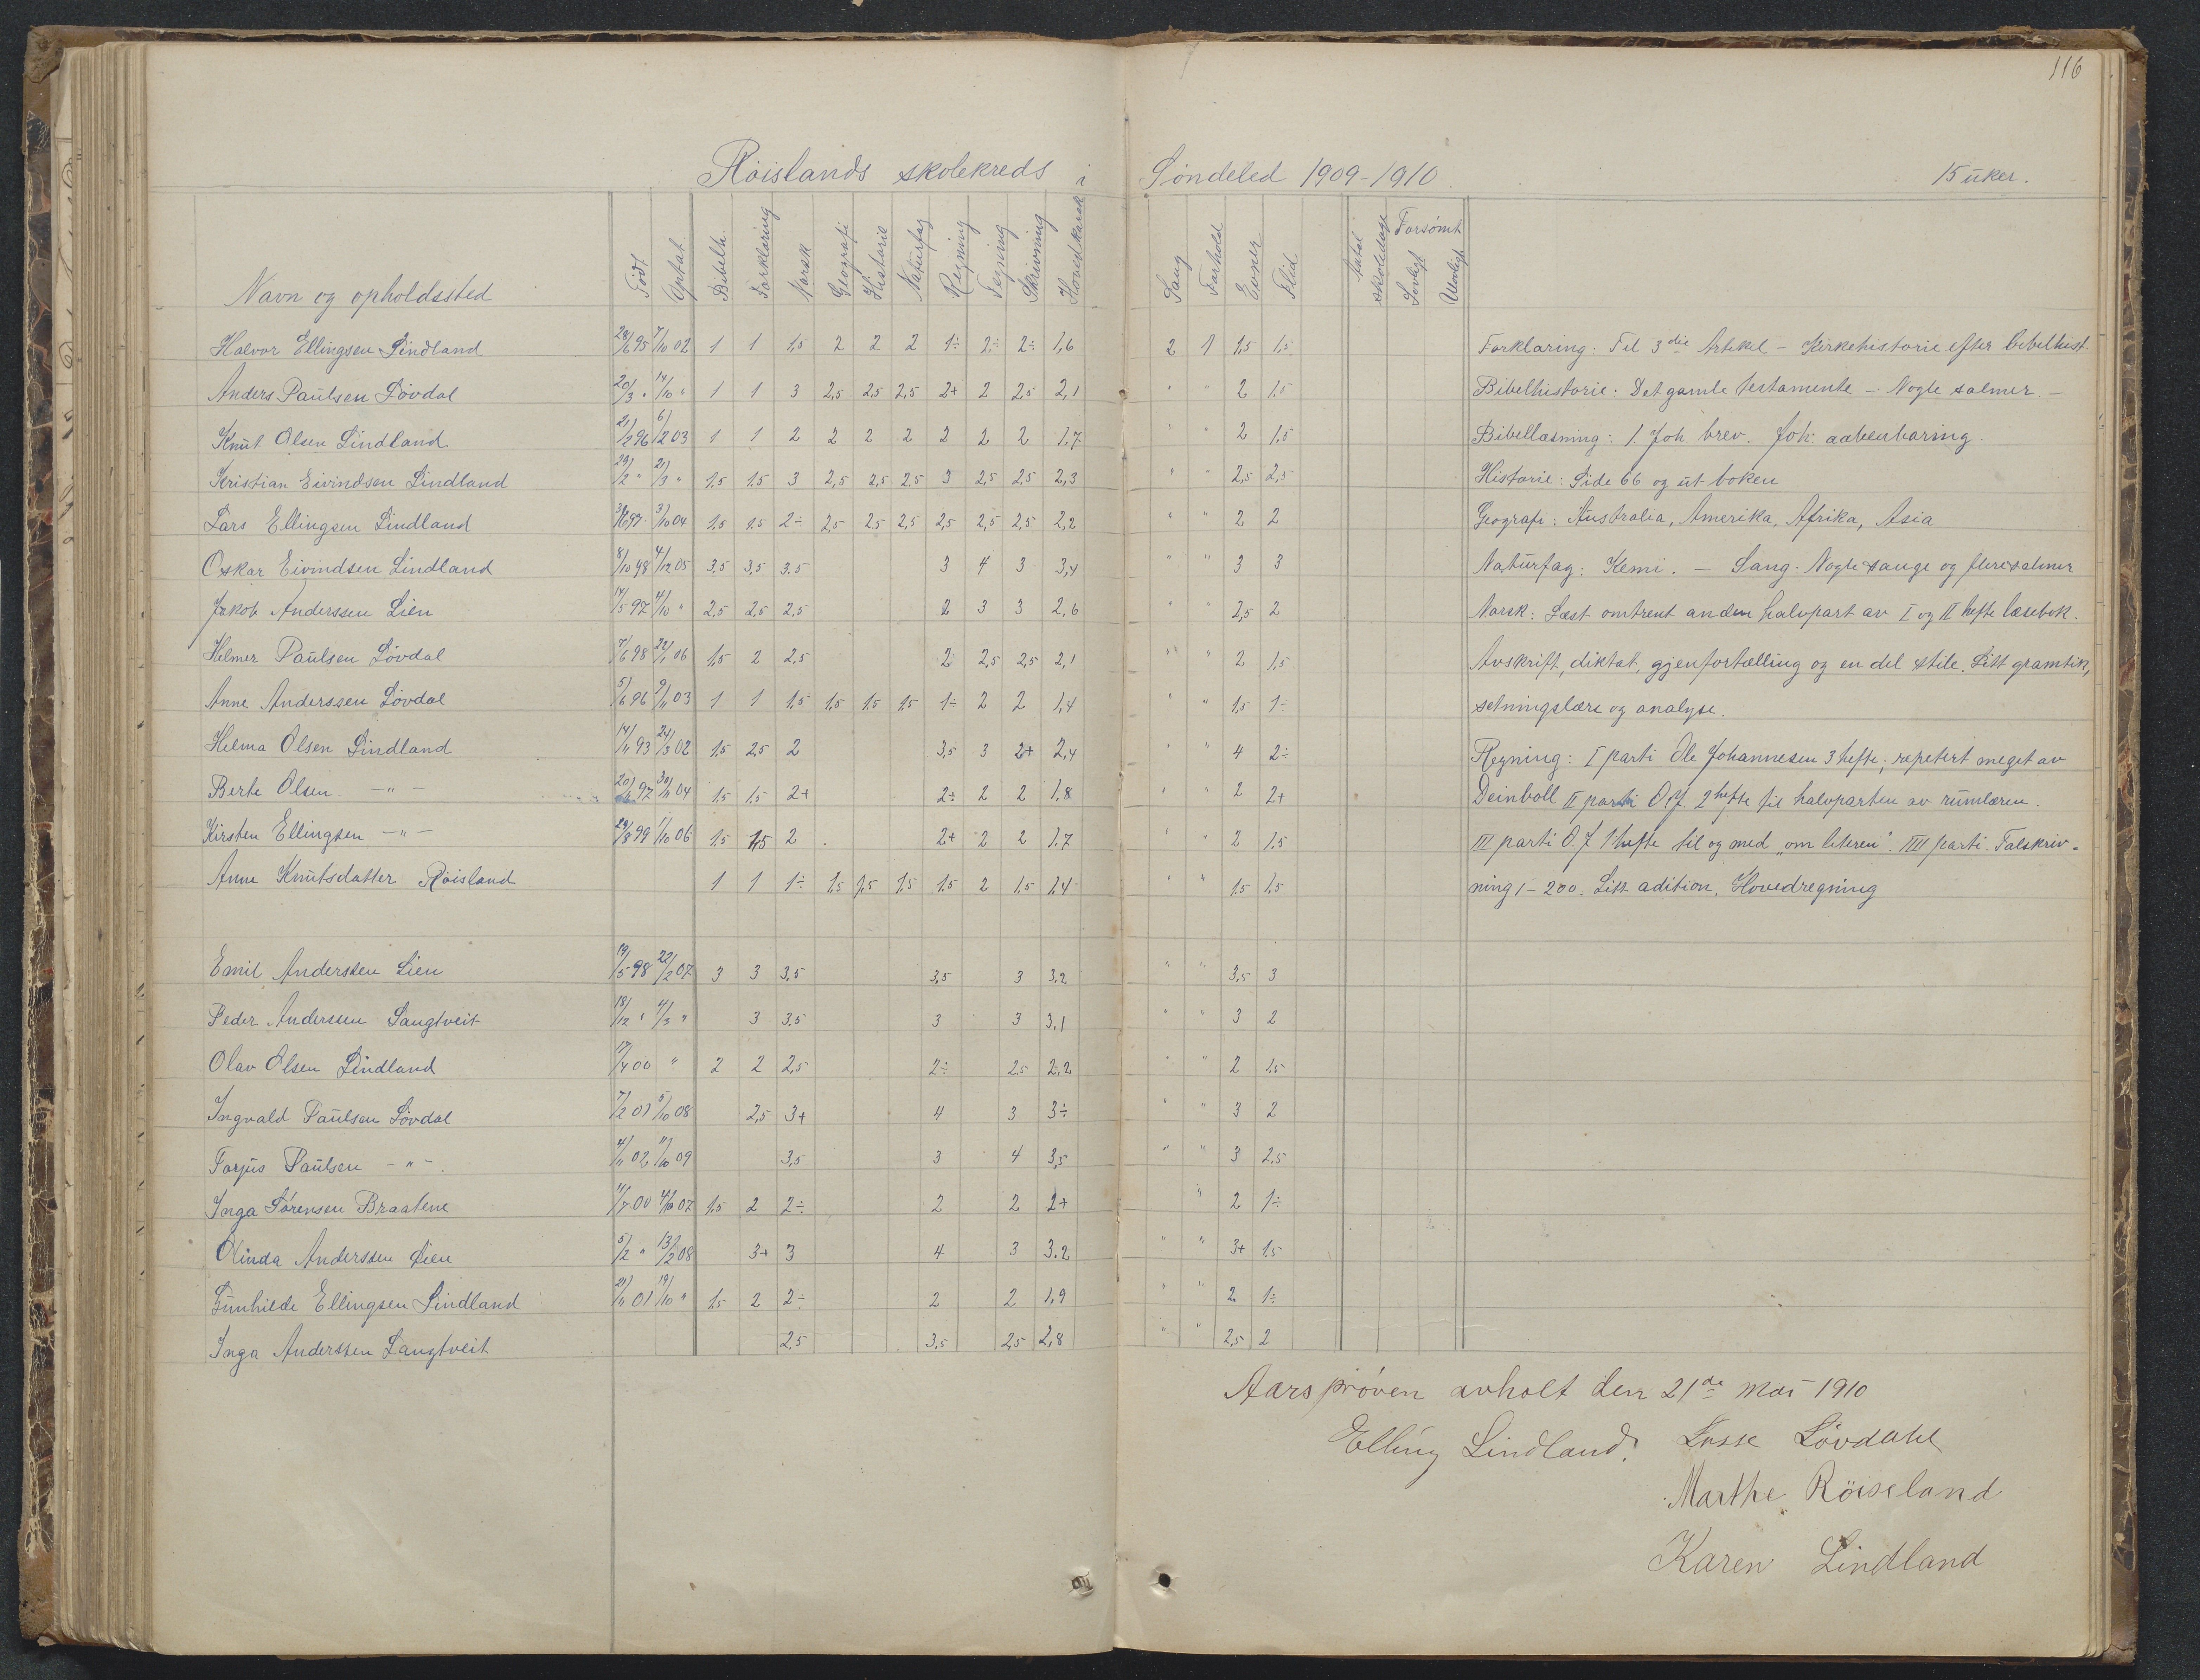 116
Röislands skolekreds i Söndeled 1909-1910. 15 uker.
Navn og opholdssted Född Optat Bibelh. Forklaring Norsk Geografi Historie Naturfag Regning Tegning Skrivning Hovedkarak Sang Forhold Evner Flid Antal skoledage Forsömt Lovligt Ulovligt
Halvor Ellingsen Lindland 28/6 95 7/10 02 1 1 1,5 2 2 2 1÷ 2÷ 2÷ 1,6 2 1 1,5 1,5 Forklaring: Til 3die Artikel - Kirkehistorie efter bibelhist.
Anders Paulsen Lövdal 20/3 " 14/10 " 1 1 3 2,5 2,5 2,5 2+ 2 2,5 2,1 " " 2 1,5 Bibelhistorie: Det gamle testamente - Nogle salmer. -
Knut Olsen Lindland 21/2 96 6/12 03 1 1 2 2 2 2 2 2 2 1,7 " " 2 1,5 Bibellæsning: 1. Joh. brev. Joh. aabenbaring.
Kristian Eivindsen Lindland 29/2 " 21/3 " 1,5 1,5 3 2,5 2,5 2,5 3 2,5 2,5 2,3 " " 2,5 2,5 Historie: Side 66 og ut boken
Lars Ellingsen Lindland 97 3/10 04 1,5 1,5 2÷ 2,5 2,5 2,5 2,5 2,5 2,5 2,2 " " 2 2 Geografi: Australia, Amerika, Afrika, Asia
Oskar Eivindsen Lindland 8/10 98 4/12 05 3,5 3,5 3,5 3 4 3 3,4 " " 3 3 Naturfag: Kemi. - Sang: Nogle sange og flere salmer
Jakob Anderssen Lien 14/5 97 4/10 " 2,5 2,5 2,5 2 3 3 2,6 " " 2,5 2 Norsk: Læst omtrent anden halvpart av I og II hefte læsebok.
Helmer Paulsen Lövdal 7/6 98 22/1 06 1,5 2 2,5 2 2,5 2,5 2,1 " " 2 1,5 Avskrift, diktat, gjenfortælling og en del stile. Litt gramtik,
Anne Anderssen Lövdal 5/6 96 9/11 03 1 1 1,5 1,5 1,5 1,5 1÷ 2 2 1,4 " " 1,5 1÷ setningslære og analyse.
Helma Olsen Lindland 14/11 93 24/3 02 1,5 2,5 2 3,5 3 2+ 2,4 " " 4 2÷ Regning: I parti Ole Johannesen 3 hefte; repetert meget av
Berte Olsen - " - 20/ 97 30/11 04 1,5 1,5 2+ 2÷ 2 2 1,8 " " 2 2+ Deinboll II parti O.J. 2 hefte til halvparten av rumlæren.
Kirsten Ellingsen - " - 29/8 99 1/10 06 1,5 1,5 2 2+ 2 2 1,7 " " 2 1,5 III parti O.J. 1 hefte til og med "om literen". IIII parti. Talskriv-
Anne Knutsdatter Röisland 1 1 1÷ 1,5 1,5 1,5 1,5 2 1,5 1,4 " " 1,5 1,5 ning 1-200. Litt adition. Hovedregning
Emil Anderssen Lien 19/5 98 22/2 07 3 3 3,5 3,5 3 3,2 " " 3,5 3
Peder Anderssen Langtveit 18/12 " 4/3 " 3 3,5 3 3 3,1 " " 3 2
Olav Olsen Lindland 17/4 00 " 2 2 2,5 2÷ 2,5 2,2 " " 2 1,5
Ingvald Paulsen Lövdal 7/2 01 5/10 08 2,5 3+ 4 3 3÷ " " 3 2
Torjus Paulsen - " -. 4/11 02 11/10 09 3,5 3 4 3,5 " " 3 2,5
Inga Sörensen Braatene 00 4/10 07 1,5 2 2÷ 2 2 2+ " 2 1÷
Olinda Anderssen Lien 5/2 " 13/2 08 3+ 3 4 3 3.2 " " 3+ 1,5
Gunhilde Ellingsen Lindland 21/11 01 19/10 " 1,5 2 2÷ 2 2 1,9 " " 2 1÷
Inga Anderssen Langtveit 2,5 3,5 2,5 2,8 " " 2,5 2
Aarspröven avholt den 21de Mai 1910
Elling Lindland. Lasse Lövdahl
Marthe Röiseland
Karen Lindland